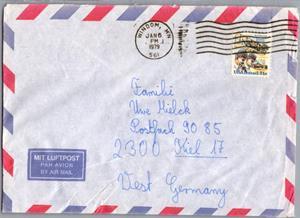 WINDOM, MN
JAN 6
PM
1979
561
USAirmail 31c
Familie
Uwe Mielck
Postfach 90 85
2300 Kiel 17
West Germany
MIT LUFTPOST
PAR AVION
BY AIR MAIL